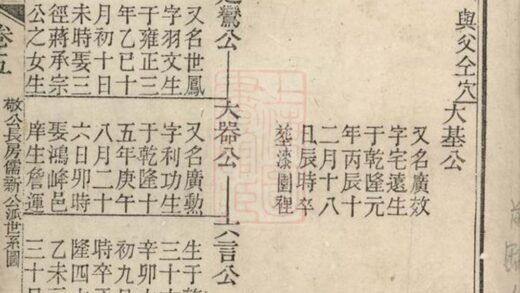 與父仝穴
大基公
又名廣效
字宅遠生
于乾隆元
年丙辰十
二月十八
丑辰時卒
塟漆園裡
鸞公
又名世鳳
字羽文生
于雍正三
年乙巳十
月初十日
未時娶三
徑蔣承宗
公之女生
大器公
又名廣勲
字利功生
于乾隆十
五年庚午
八月二十
六日卯時
娶鴻峰邑
庠生詹運
六言公
生于乾
三十
辛卯十
初九
時卒
隆四
乙未
三十
卷五
敬公長房儒新公派世系圖